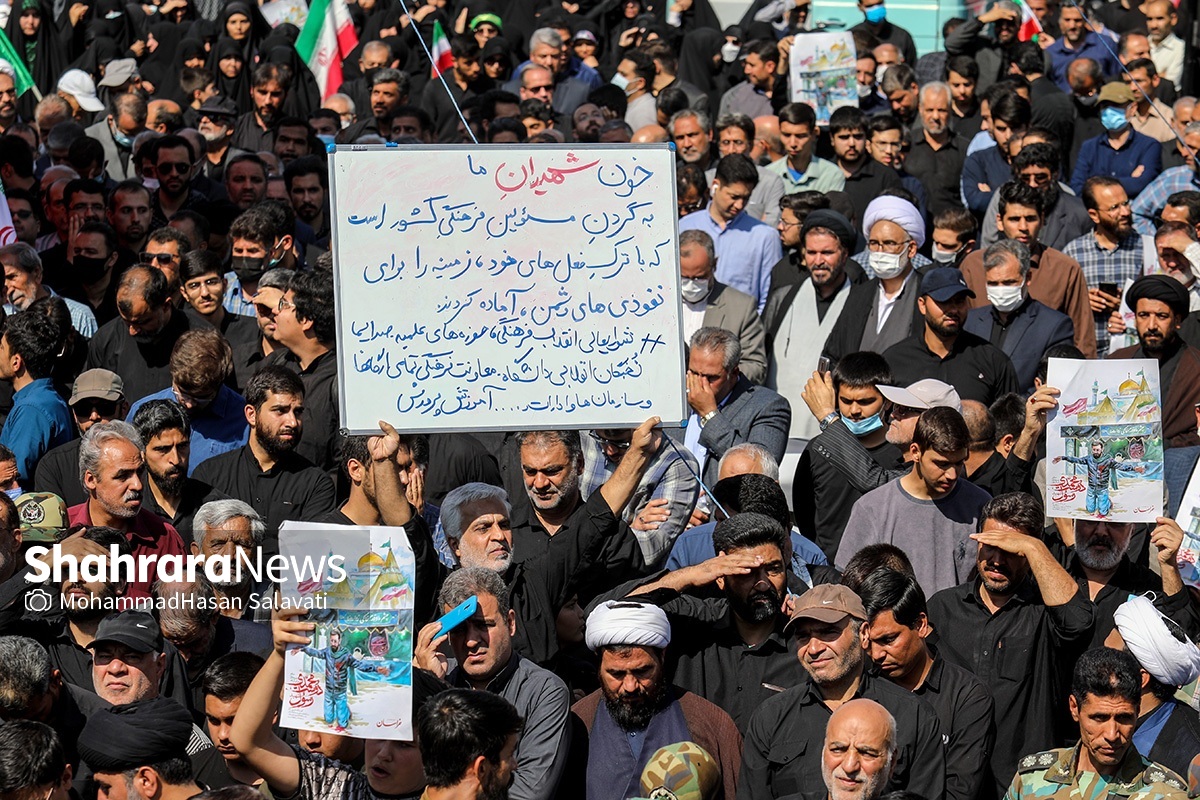 خون شهیدانِ ما
به گردنِ مسئولینِ فرهنگیِ کشور است
که با ترکِ فعل‌های خود، زمینه را برای
نفوذی‌های دشمن، آماده کردند
# شورایعالی انقلاب فرهنگی، حوزه‌های علمیه، صداسیما
نخبگان انقلابیِ دانشگاه، معاونت فرهنگی تمامی ارگانها
و سازمان‌ها و ادارات.... آموزش پرورش
ShahraraNews
MohammadHasan Salavati
خراسان
خراسان